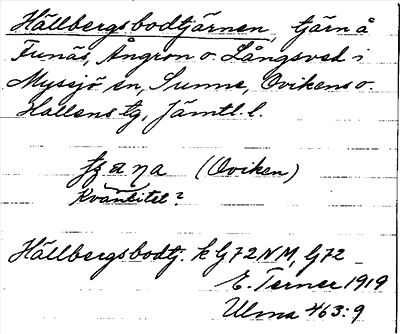 Hällbergsbodtjärnen, tjärn å
Funäs, Ångron o. Långsved i
Myssjö sn, Sunne, Ovikens o.
Hallens tg, Jämtl. l.
(Oviken)
Kvantitet?
Hällbergsbodtj. k G72 NM, G72
E. Terner 1919
Ulma 463:9